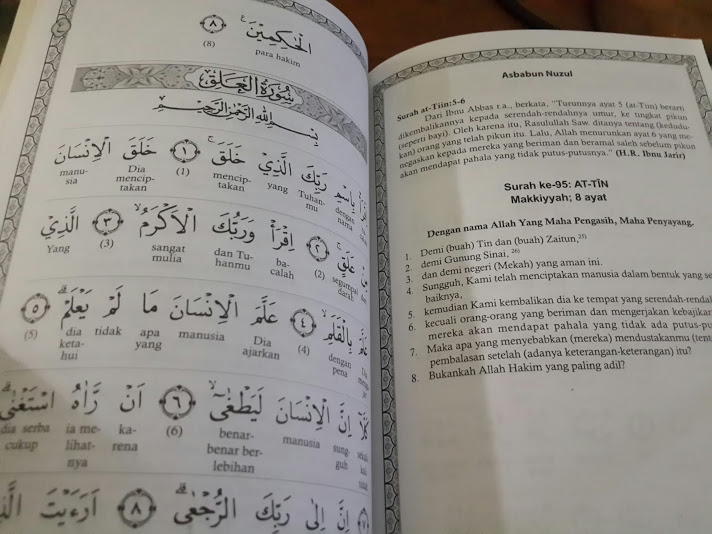 الْحٰكِمِيْنَ ۝٨
(8) para hakim
سُوْرَةُ الْعَلَقِ
بِسْمِ اللّٰهِ الرَّحْمٰنِ الرَّحِيْمِ
بِاسْمِ رَبِّكَ الَّذِيْ خَلَقَ ۝١ خَلَقَ الْاِنْسَانَ
manu- Dia (1) mencip- yang Tuhan- dengan
sia mencip- takan mu nama
takan
عَلَقٍ ۝٢ اِقْرَأْ وَرَبُّكَ الْاَكْرَمُ ۝٣ الَّذِيْ
Yang (3) sangat dan Tu- ba- (2) segumpal
mulia hanmu calah darah
بِالْقَلَمِ ۝٤ عَلَّمَ الْاِنْسَانَ مَا لَمْ يَعْلَمْ ۝٥
(5) dia tidak apa manusia Dia (4) dengan
keta- yang ajarkan pena
hui
كَلَّآ اِنَّ الْاِنْسَانَ لَيَطْغٰىٓ ۝٦ اَنْ رَّاٰهُ اسْتَغْنٰى
dia serba ia me- ka- (6) benar- manusia sung-
cukup lihat- rena benar ber- guh
nya lebihan
اِنَّ اِلٰى رَبِّكَ الرُّجْعٰى ۝٨ اَرَءَيْتَ
Asbabun Nuzul
Surah at-Tiin:5-6
Dari Ibnu Abbas r.a., berkata, "Turunnya ayat 5 (at-Tin) berarti
dikembalikannya kepada serendah-rendahnya umur, ke tingkat pikun
(seperti bayi). Oleh karena itu, Rasulullah Saw. ditanya tentang (kedudu-
kan) orang yang telah pikun itu. Lalu, Allah menurunkan ayat 6 yang me-
negaskan kepada mereka yang beriman dan beramal saleh sebelum pikun
akan mendapat pahala yang tidak putus-putusnya." (H.R. Ibnu Jarir)
Surah ke-95: AT-TÎN
Makkiyyah; 8 ayat
Dengan nama Allah Yang Maha Pengasih, Maha Penyayang.
1. Demi (buah) Tin dan (buah) Zaitun,25)
2. demi Gunung Sinai, 26)
3. dan demi negeri (Mekah) yang aman ini.
4. Sungguh, Kami telah menciptakan manusia dalam bentuk yang
baiknya,
5. kemudian Kami kembalikan dia ke tempat yang
6. kecuali orang-orang yang beriman dan mengerjakan
mereka akan mendapat pahala yang tidak ada
7. Maka apa yang menyebabkan (mereka) mendustakanmu
pembalasan setelah (adanya keterangan-keterangan) itu?
8. Bukankah Allah Hakim yang paling adil?